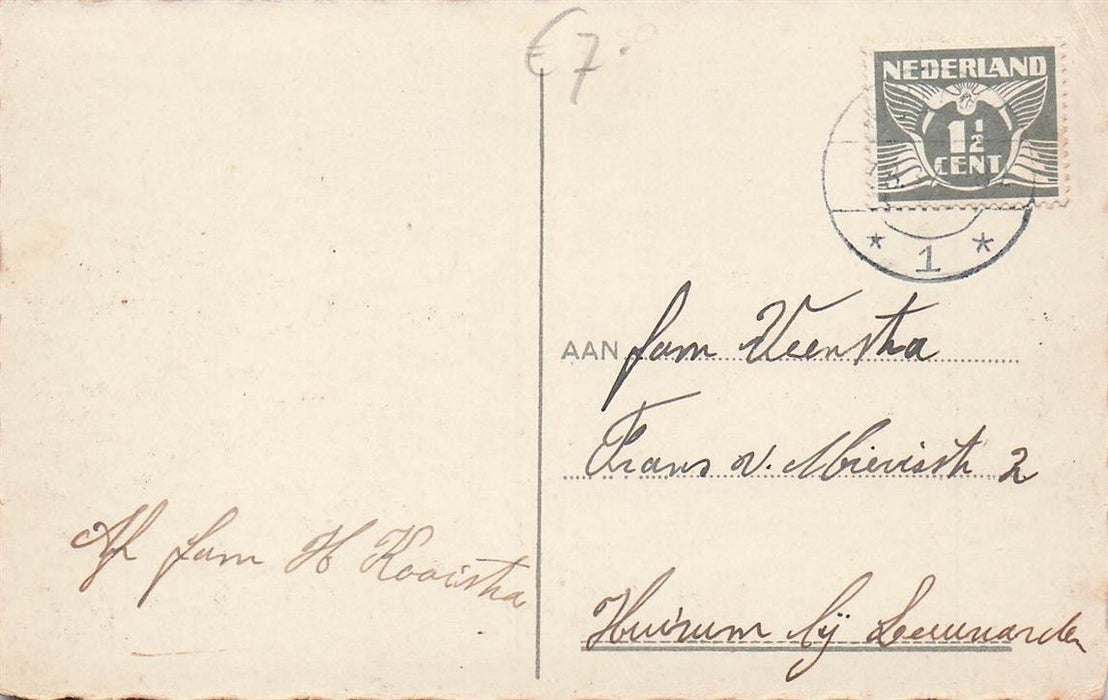 €7.-
NEDERLAND
1½
CENT
* 1 *
AAN fam Veenstra
Frans v. Mierisstr 2
Huizum bij Leeuwarden
Af fam H Kooistra